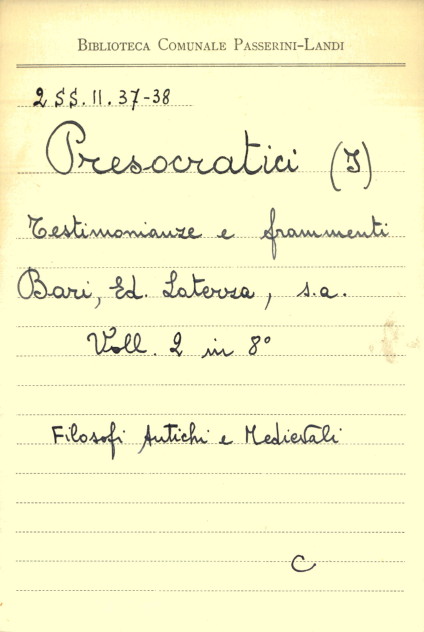 BIBLIOTECA COMUNALE PASSERINI-LANDI
2 SS. II. 37-38
Presocratici (I)
Testimonianze e frammenti
Bari, Ed. Laterza, s.a.
Voll. 2 in 8°
Filosofi Antichi e Medievali
C